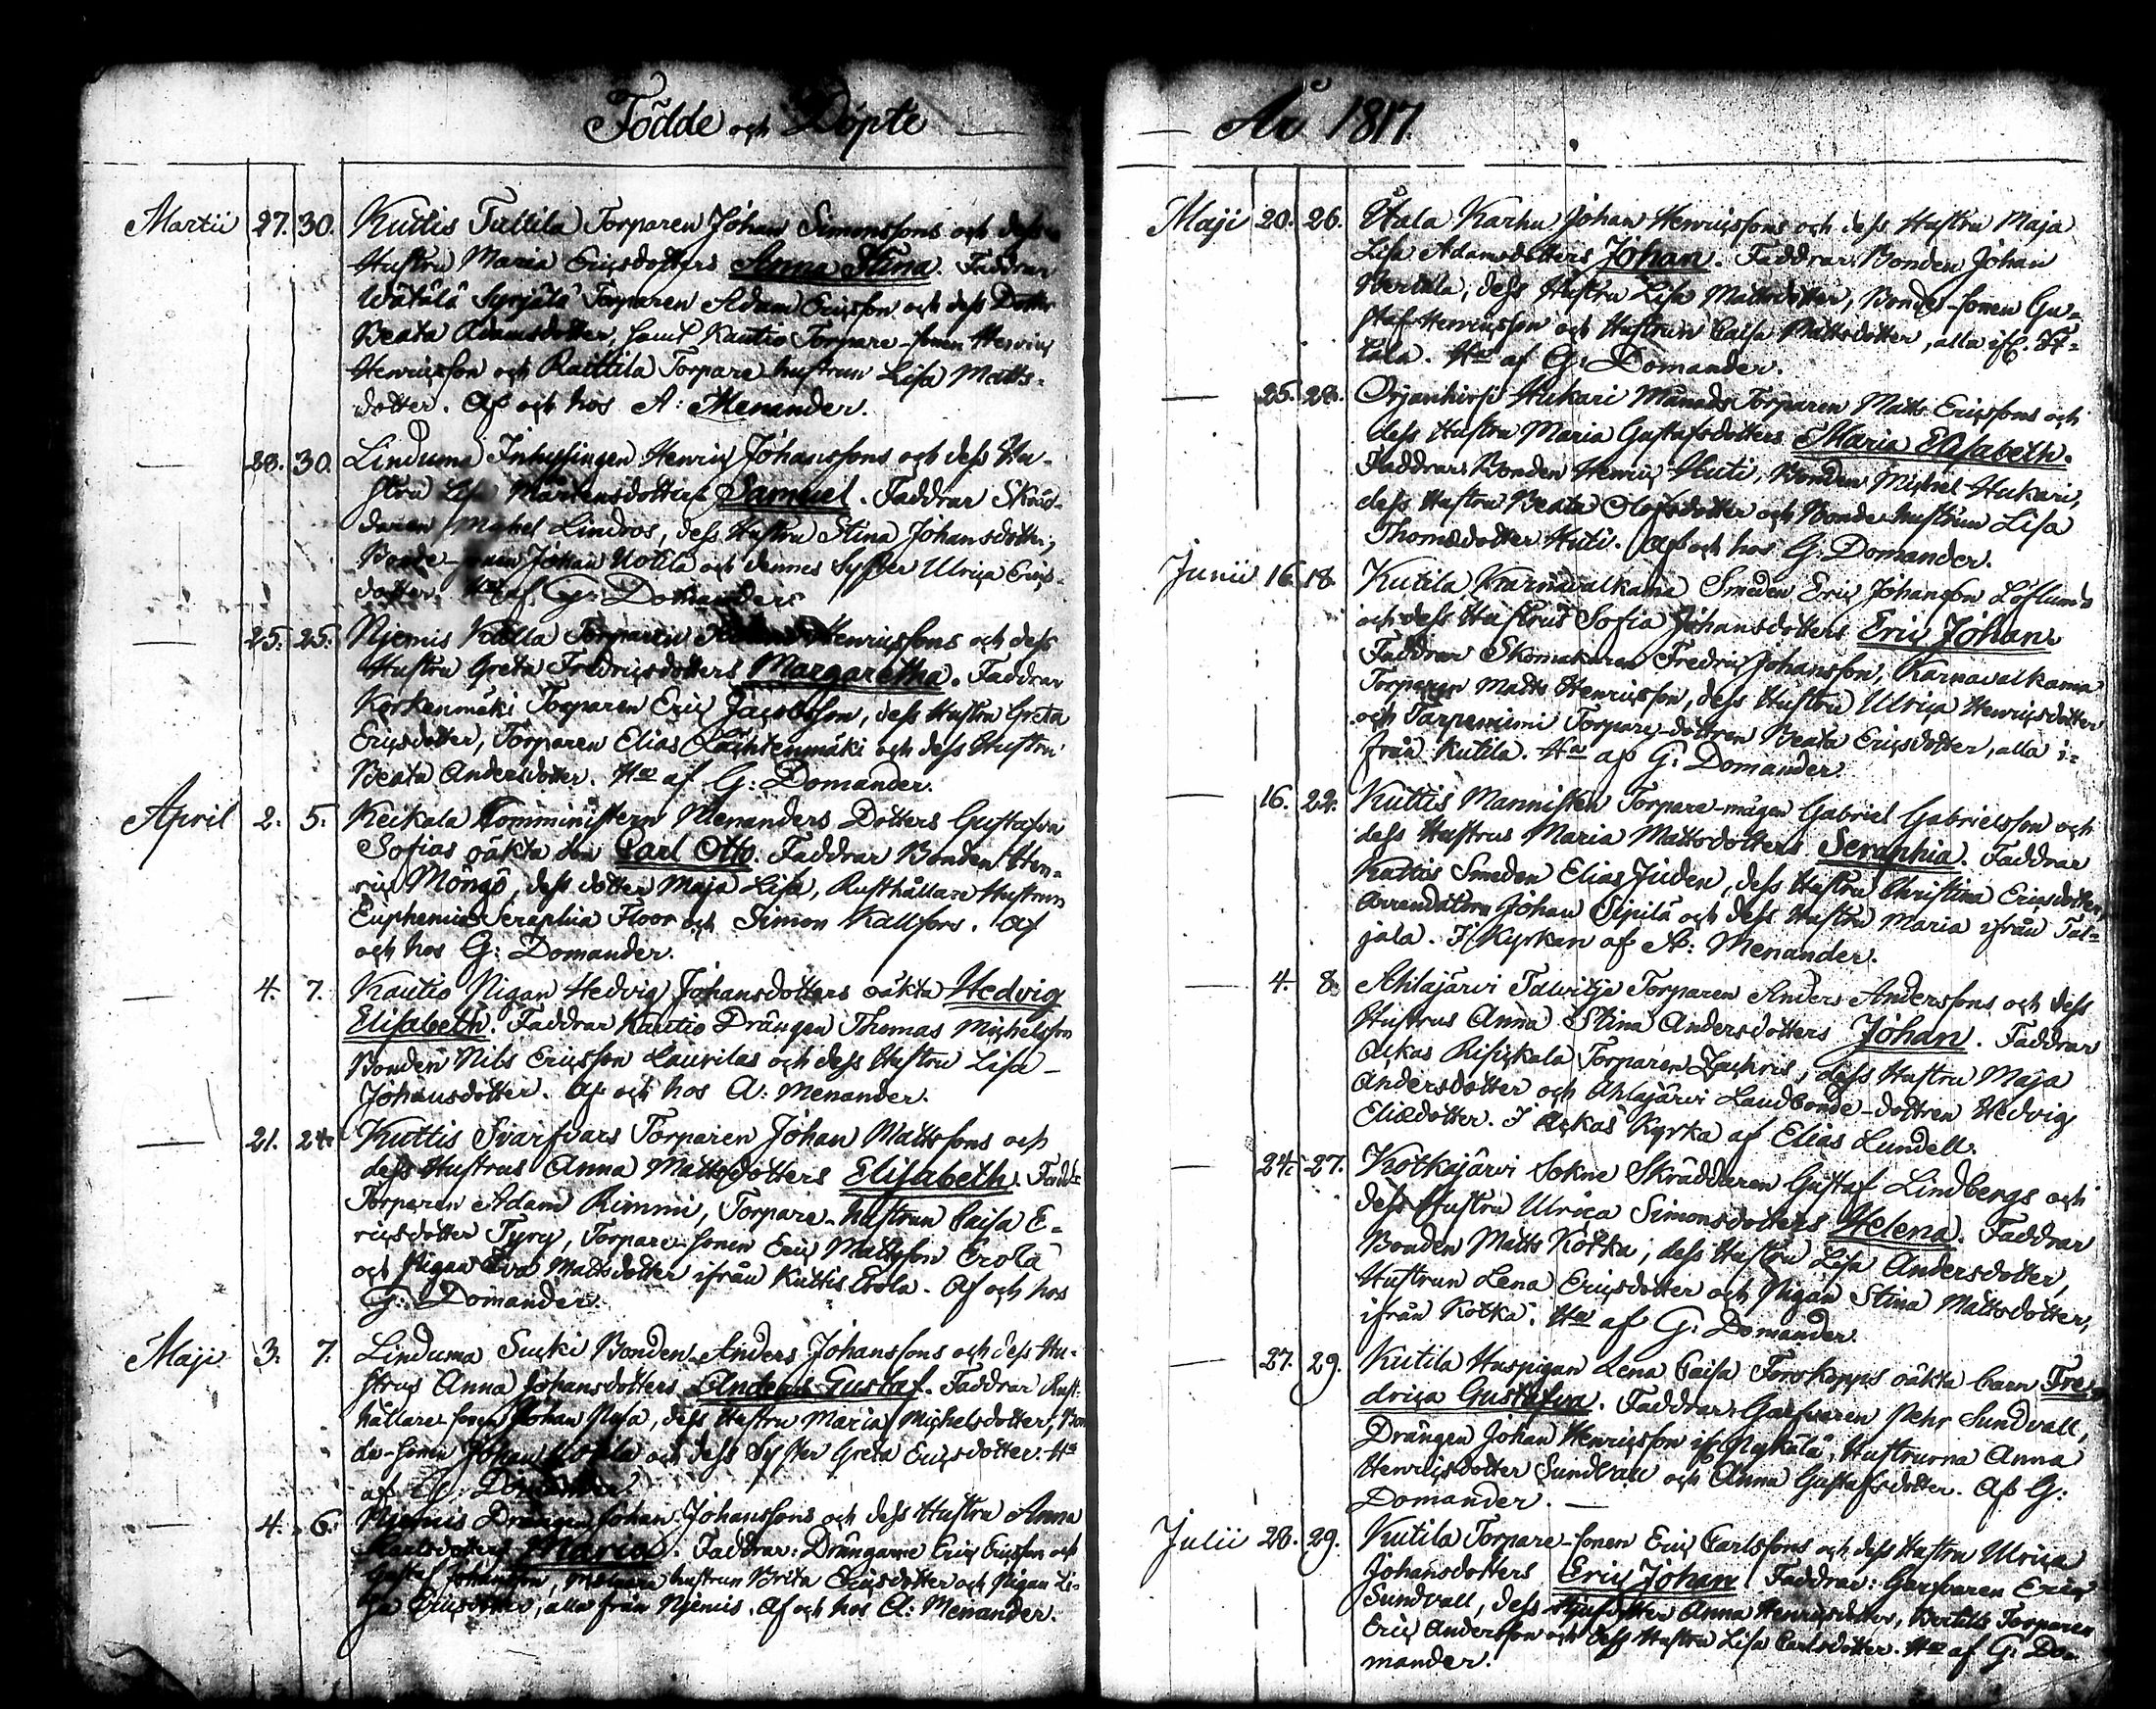 Födde och Döpte
Martii 27. 30. Kuttis Tuttila Torparen Johan Simonssons och dess
Hustru Maria Ericsdotters Anna Stina. Faddrar
Wätälä Syrjälä Torparen Adam Ericsson och dess Dotter
Beata Adamsdotter, samt Kautio Torpare-sonen Henric
Henricsson och Raittila Torpare hustrun Lisa Matts-
dotter. Af och hos A: Menander.
— 28. 30. Linduma Inhysingen Henric Johanssons och dess Hu-
stru Lisa Mårtensdotters Samuel. Faddrar Skräd-
daren Michel Lindros, dess Hustru Stina Johansdotter,
Bonde-sonen Johan Uotila och dennes Syster Ulrica Erics-
dotter. Hos af G: Domander.
— 25. 25. Njemis Källa Torparen Henricssons och dess
Hustru Greta Fredricsdotters Margaretha. Faddrar
Korkenmäki Torparen Eric Jacobsson, dess Hustru Greta
Ericsdotter, Torparen Elias Lächtenmäki och dess Hustru
Beata Andersdotter. Hos af G: Domander.
April 2. 5. Keikala Comministern Menanders Dotters Gustafva
Sofias oäkta son Carl Otto. Faddrar Bonden Hen-
ric Möngö, dess dotter Maja Lisa, Rusthållare Hustrun
Euphemia Seraphia Floor och Simon Kallfors. Af
och hos G: Domander.
— 4. 7. Kautio Pigan Hedvig Johansdotters oäkta Hedvig
Elisabeth. Faddrar Kautio Drängen Thomas Michelsson
Bonden Nils Ericsson Laurilas och dess Hustru Lisa
Johansdotter. Af och hos A: Menander.
— 21. 24. Kuttis Svarfvars Torparen Johan Mattssons och
dess Hustrus Anna Mattsdotters Elisabeth. Fadd:
Torparen Adam Rimmi, Torpare-hustrun Caisa E-
ricsdotter Tyry, Torpare-sonen Eric Mattsson Erola
och Pigan Eva Mattsdotter ifrån Kuttis Erola. Af och hos
G: Domander.
Maji 3. 7. Linduma Sucki Bonden Anders Johanssons och dess Hu-
strus Anna Johansdotters Anders Gustaf. Faddrar Rust-
hållare sonen Johan Pusa, dess Hustru Maria Michelsdotter, Bon
de-sonen Johan Uotila och dess Syster Greta Ericsdotter. Hos
af G: Domander.
— 4. 6. Njemis Drängen Johan Johanssons och dess Hustru Anna
Karlsdotters Maria. Faddrar: Drängarne Eric Ericsson och
Gustaf Johansson, hustrun Brita Ericsdotter och Pigan Li-
sa Ericsdotter, alla från Njemis. Af och hos A: Menander.
År 1817.
Maji 20. 26. Utala Karhu Johan Henricssons och dess Hustru Maja
Lisa Adamsdotters Johan. Faddrar Bonden Johan
Hertala, dess Hustru Lisa Mattsdotter, Bondes-sonen Gu-
staf Henricsson och Hustrun Caisa Mattsdotter, alla ifr.
tala. Hos af G: Domander.
— 25. 28. Orjanhirsi Hukari Månads Torparen Matts Ericssons och
dess Hustru Maria Gustafsdotters Maria Elisabeth.
Faddrar Bonden Henric Huti, Bonden Michel Hukari,
dess Hustru Beata Olofsdotter och Bonde hustrun Lisa
Thomsdotter Huti. Af och hos G: Domander.
Junii 16. 18. Kutila Karnavalkama Smeden Eric Johansson Löflunds
och dess Hustrus Sofia Johansdotters Eric Johan
Faddrar Skomakaren Fredric Johansson, Karnavalkama
Torparen Matts Henricsson, dess Hustru Ulrica Henricsdotter
och Tarpeniemi Torpare-dottren Beata Ericsdotter, alla i-
från Kutila. Hos af G: Domander
— 16. 22. Kuttis Mannisten Torpare-mågen Gabriel Gabrielsson och
dess Hustrus Maria Mattsdotters Seraphia. Faddrar
Kattis Smeden Elias Juden, dess Hustru Christina Ericsdotter,
Arrendatorn Johan Sipilä och dess Hustru Maria ifrån Tal-
jala. I Kyrkan af A: Menander.
— 4. 8. Ahlajärvi Talvitje Torparen Anders Anderssons och dess
Hustrus Anna Stina Andersdotters Johan. Faddrar
Ackas Risickala Torparen Zachris, dess Hustru Maja
Andersdotter och Ahlajärvi Landbonde-dottren Hedvig
Eliædotter. I Ackas Kyrka af Elias Lundell.
— 24. 27. Kotkajärvi Sokne Skräddaren Gustaf Lindbergs och
dess Hustru Ulrica Simonsdotters Helena. Faddrar
Bonden Matts Kotka, dess Hustru Lisa Andersdotter,
Hustrun Lena Ericsdotter och Pigan Stina Mattsdotter,
ifrån Kotka. Hos af G: Domander.
— 27. 29. Kutila Huspigan Lena Caisa Forskopps oäkta barn Fre-
drica Gustafva. Faddrar Garfvaren Pehr Sundvall,
Drängen Johan Henricsson ifr Pyhälä, Hustrurna Anna
Henricsdotter Sundvall och Anna Gustafsdotter. Af G:
Domander. —
Julii 28. 29. Kutila Torpare-sonen Eric Carlssons och dess Hustru Ulrica
Johansdotters Eric Johan Faddrar: Garfvaren Eric
Sundvall, dess Anna Henricsdotter, Torparen
Eric Andersson och dess Hustru Lisa Carlsdotter. Hos af G: Do-
mander.